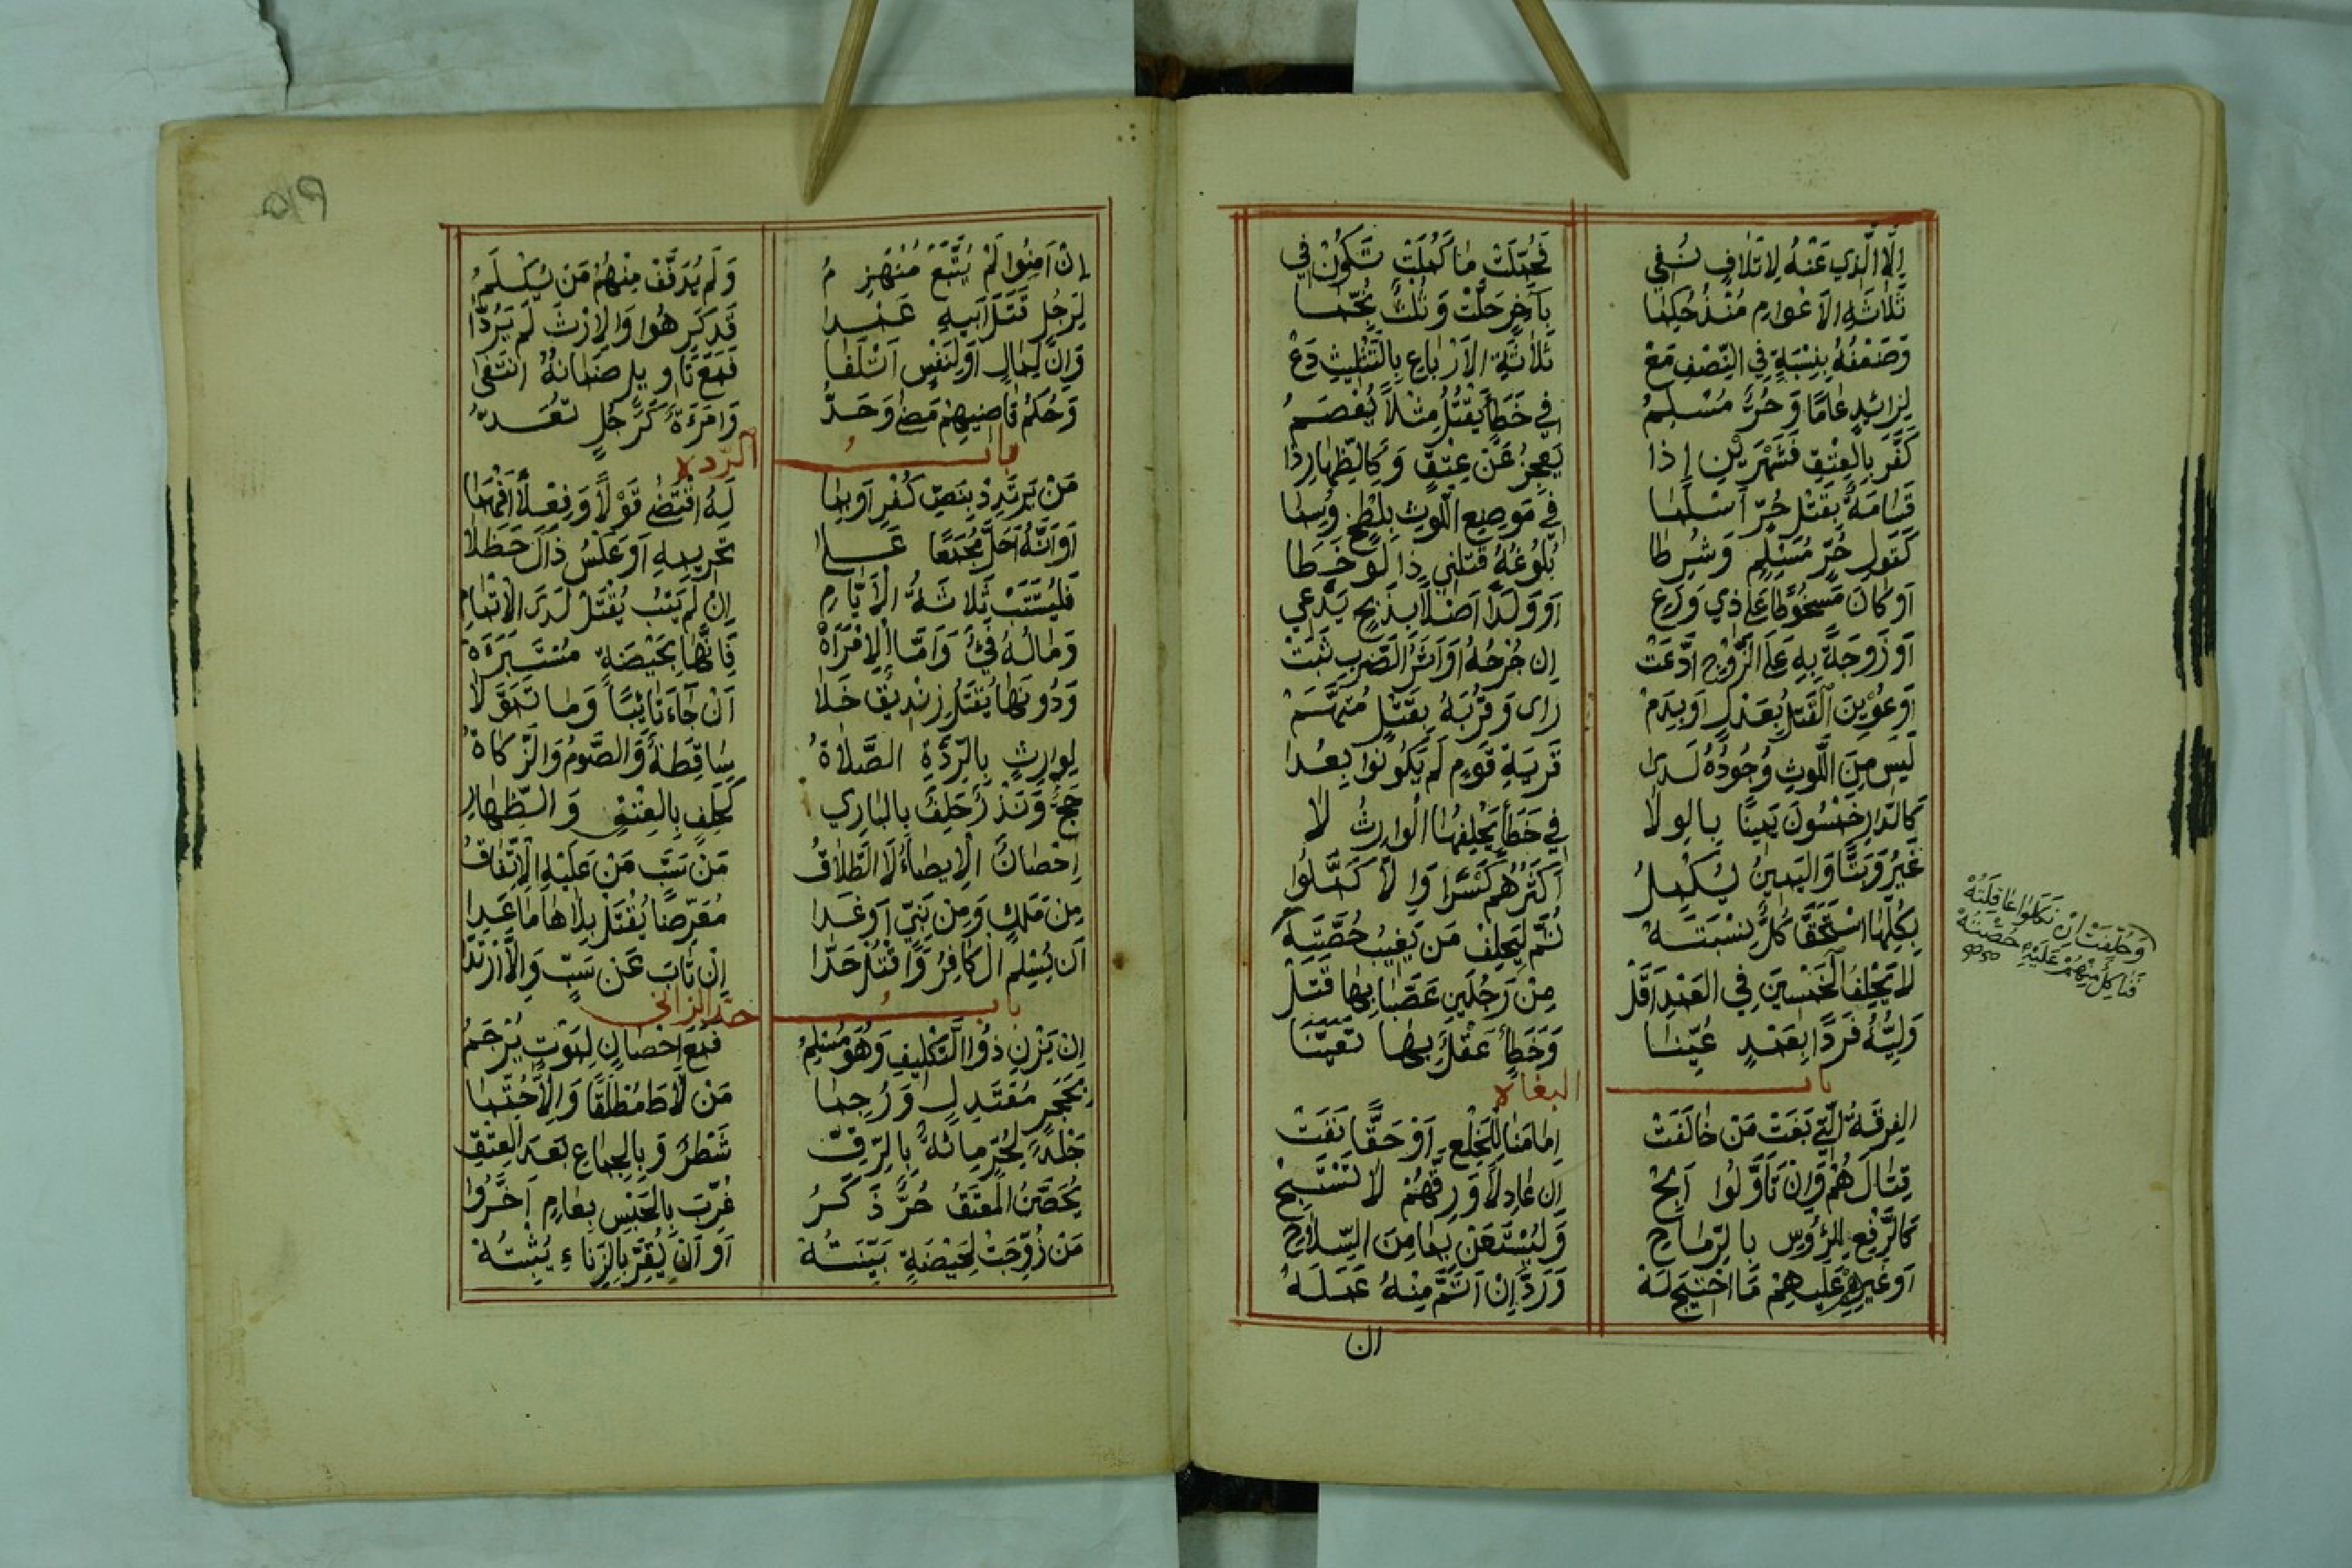 اِلَّا الَّذِي عَنْهُ لِاتْلَافٍ نُفِي فَجُمِّلَتْ مَا كَمُلَتْ تَكُونُ فِي
ثَلَاثَةِ الْاَعْوَامِ مُنْذُ حُكِمَا بِآخِرٍ حَلَّتْ وَثُلْثٌ نُجِّمَا
وَضَعْفُهُ بِنِسْبَةٍ فِي النِّصْفِ مَعْ ثَلَاثَةِ الْاَرْبَاعِ بِالتَّثْلِيثِ دَعْ
لِزَائِدٍ عَامًا وَحُرٌّ مُسْلِمُ فِي خَطَأٍ يَقْتُلُ مِثْلًا يُعْصَمُ
كَفَّرَ بِالْعِتْقِ فَشَهْرَيْنِ اِذَا يَعْجِزُ عَنْ عِتْقٍ وَكَالظِّهَارِ ذَا
قَسَامَةٌ بِقَتْلِ حُرٍّ اَسْلَمَا فِي مَوْضِعِ اللَّوْثِ بِلَطْخٍ وُسِمَا
كَقَوْلِ حُرٍّ مُسْلِمٍ وَشُرِطَا بُلُوغُهُ قَتَلَنِي ذَا لَوْ خَطَا
اَوْ كَانَ مَسْخُوطًا عَلَى ذِي وَرَعِ اَوْ وَلَدًا اَصْلًا بِذَبْحٍ يَدَّعِي
اَوْ زَوْجَةً بِهِ عَلَى الزَّوْجِ ادَّعَتْ اِنْ جُرْحُهُ اَوْ اَثَرُ الضَّرْبِ ثَبَتْ
اَوْ عُوْيِنَ الْقَتْلُ بِعَدْلٍ اَوْ بِدَمْ رَاى وَقُرْبَهُ بِقَتْلٍ مُتَّهَمْ
لَيْسَ مِنَ اللَّوْثِ وُجُودُهُ لَدَى قَرْيَةِ قَوْمٍ لَمْ يَكُونُوا بِعِدَا
كَالدَّارِ خَمْسُونَ يَمِينًا بِالْوِلَا فِي خَطَأٍ يَحْلِفُهَا الْوَارِثُ لَا
غَيْرُ وَبَتًّا وَالْيَمِينُ يُكْمِلُ اَكْثَرُهُمْ كَسْرًا وَاِلَّا كَمَّلُوا
بِكُلِّهَا اسْتَحَقَّ كُلٌّ نِسْبَتَهْ ثُمَّ لْيَحْلِفْ مَنْ يَغِيبُ حِصَّتَهْ
لَا يَحْلِفُ الْخَمْسِينَ فِي الْعَمْدِ اَقَلّْ مِنْ رَجُلَيْنِ عَصَبَا بِهَا قَتَلْ
وَلِيُّهُ فَرْدًا بِعَمْدٍ عُيِّنَا وَخَطَأٌ عَقْلٌ بِهَا تَعَيَّنَا
بابُ البغاة
الْفِرْقَةُ الَّتِي بَغَتْ مَنْ خَالَفَتْ اِمَامَنَا لِلْخَلْعِ اَوْ حَقًّا نَفَتْ
قِتَالَهُمْ وَاِنْ تَاَوَّلُوا اَبِحْ اِنْ عَادِلًا وَرِقَّهُمْ لَا تَسْتَبِحْ
كَالرَّفْعِ لِلرُّؤُسِ بِالرِّمَاحِ وَلْيُسْتَعَنْ بِمَا مِنَ السِّلَاحِ
اَوْ غَيْرِهِ عَلَيْهِمْ مَا احْتِيجَ لَهْ وَرُدَّ اِنْ اَتَمَّ مِنْهُ عَمَلَهْ
ان
وَحُلِّفَتْ اِنْ نَكَلُوا عَاقِلَتُهْ
فَنَاكِلٌ مِنْهُمْ عَلَيْهِ حِصَّتُهْ
اِنْ اَمِنُوا لَمْ يُتَّبَعْ مُنْهَزِمُ وَلَمْ يُذَفَّفْ مِنْهُمْ مَنْ يُكْلَمُ
لِرَجُلٍ قَتْلَ اَبِيهِ عَمْدَا قَدْ كَرِهُوا وَالْاِرْثَ لَمْ يُرَدَّا
وَاِنْ لِمَالٍ اَوْ لِنَفْسٍ اَتْلَفَا فَمَعَ تَاوِيلٍ ضَمَانُهُ انْتَفَى
وَحُكْمُ قَاضِيهِمْ مَضَى وَحَدُّ وَامْرَءَةٌ كَرَجُلٍ تُعَدُّ
بابُ الردة
مَنْ يَرْتَدِدْ بِنَصِّ كُفْرٍ اَوْ بِمَا لَهُ اقْتَضَى قَوْلًا وَفِعْلًا اَفْهَمَا
اَوْ اَنَّهُ اَحَلَّ مُجْمَعًا عَلَى تَحْرِيمِهِ اَوْ عَكْسُ ذَاكَ حَظَلَا
فَلْيُسْتَتَبْ ثَلَاثَةَ الْاَيَّامِ اِنْ لَمْ يَتُبْ يُقْتَلْ لَدَى الْاِتْمَامِ
وَمَالُهُ فَيْءٌ وَاَمَّا الْاِمْرَاَةْ فَاِنَّهَا بِحَيْضَةٍ مُسْتَبْرَءَةْ
وَدُونَهَا يُقْتَلُ زِنْدِيقٌ خَلَا اَنْ جَاءَ تَائِبًا وَمَا تَمَوَّلَا
لِوَارِثٍ بِالرِّدَّةِ الصَّلَاةُ سَاقِطَةٌ وَالصَّوْمُ وَالزَّكَاةُ
حَجٌّ وَنَذْرٌ حَلِفٌ بِالْبَارِي كَحَلِفٍ بِالْعِتْقِ وَالظِّهَارِ
اِحْصَانٌ الْاِيصَاءُ لَا الطَّلَاقُ مَنْ سَبَّ مَنْ عَلَيْهِ الْاِتِّفَاقُ
مِنْ مَلَكٍ وَمِنْ نَبِيٍّ اَوْ غَدَا مُعَرِّضًا يُقْتَلُ بِذَا مَا عَدَا
اَنْ يُسْلِمَ الْكَافِرُ وَاقْتُلْ حَدَّا اِنْ تَابَ عَنْ سَبٍّ وَاِلَّا ارْتَدَّا
بابُ حدّ الزاني
اِنْ يَزْنِ ذُو التَّكْلِيفِ وَهُوَ مُسْلِمُ فَمَعَ اِحْصَانٍ لِمَوْتٍ يُرْجَمُ
بِحَجَرٍ مُعْتَدِلٍ وَرُجِمَا مَنْ لَاطَ مُطْلَقًا وَاِلَّا حُتِمَا
جَلْدٌ لِحُرٍّ مِائَةٌ بِالرِّقِّ شَطْرٌ وَبِالْجِمَاعِ بَعْدَ الْعِتْقِ
يُحَصَّنُ الْمُعْتَقُ حُرٌّ ذَكَرُ غُرِّبَ بِالْحَبْسِ بِعَامٍ اَخَّرُوا
مَنْ زُوِّجَتْ لِحَيْضَةٍ بَيِّنَتُهْ اَوْ اَنْ يُقِرَّ بِالزِّنَاءِ يُثْبِتُهْ